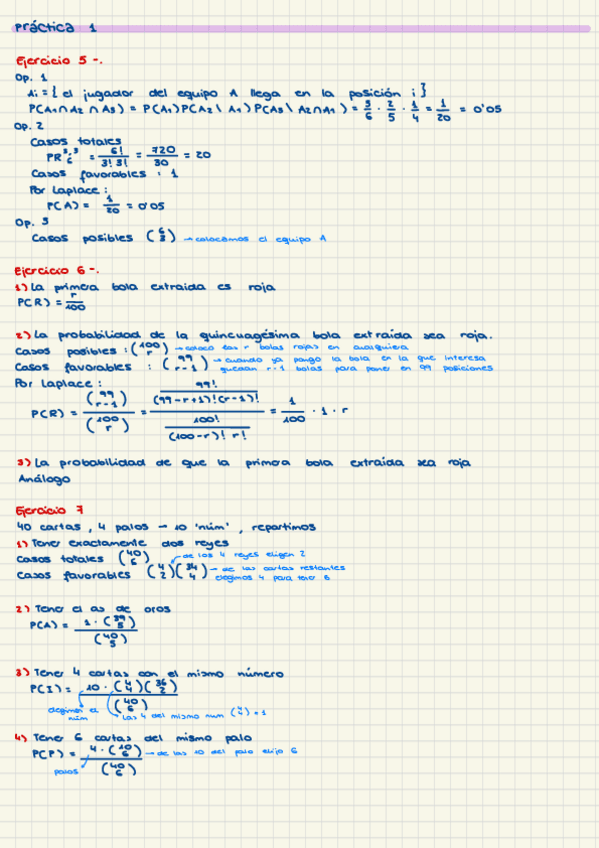 Práctica 1
Ejercicio 5-.
Op. 1
Ai = { el jugador del equipo A llega en la posición i }
P(A₁∩A₂∩A₃) = P(A₁)P(A₂\A₁)P(A₃\A₂∩A₁) = 3/6 · 2/5 · 1/4 = 1/20 = 0'05
Op. 2
Casos totales
PR₆³'³ = 6!/3!3! = 720/30 = 20
Casos favorables : 1
Por Laplace :
P(A) = 1/20 = 0'05
Op. 3
Casos posibles (6 3) → colocamos el equipo A
Ejercicio 6-.
1) La primera bola extraida es roja
P(R) = r/100
2) La probabilidad de la quincuagésima bola extraída sea roja.
Casos posibles : (100 r) → coloco las r bolas rojas en cualquiera
Casos favorables : (99 r-1) → cuando ya pongo la bola en la que interesa
quedan r-1 bolas para poner en 99 posiciones
Por Laplace :
P(R) = (99 r-1)/(100 r) = (99!/(99-r+1)!(r-1)!)/(100!/(100-r)! r!) = 1/100 · 1 · r
3) La probabilidad de que la primera bola extraída sea roja
Análogo
Ejercicio 7
40 cartas, 4 palos → 10 'núm', repartimos
1) Tener exactamente dos reyes
Casos totales (40 6) → de los 4 reyes eligen 2
Casos favorables (4 2)(34 4) → de las cartas restantes
elegimos 4 para tener 6
2) Tener el as de oros
P(A) = 1·(39 5)/(40 5)
3) Tener 4 cartas con el mismo número
P(I) = 10·(4 4)(36 2)/(40 6)
elegimos el núm
las 4 del mismo num (4 4) = 1
4) Tener 6 cartas del mismo palo
P(P) = 4·(10 6)/(40 6) → de las 10 del palo elijo 6
palos